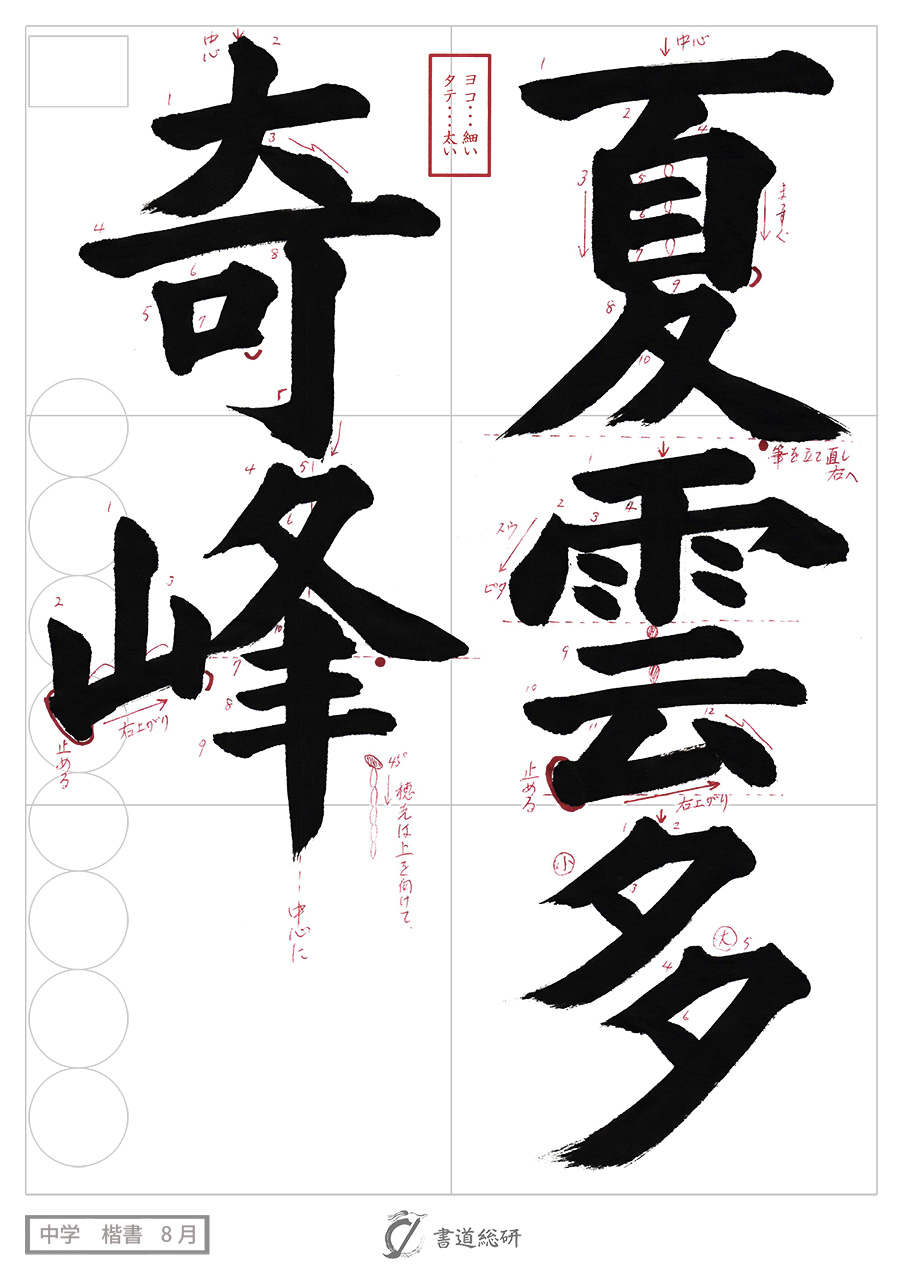 夏雲多
奇峰
ヨコ…細い
タテ…太い
中心
まっすぐ
筆を立て直し
右へ
スウ
ピタ
止める
右上がり
小
大
中心
右上がり
止める
45°
穂先は上を向けて、
中心に
中学 楷書 8月
書道総研